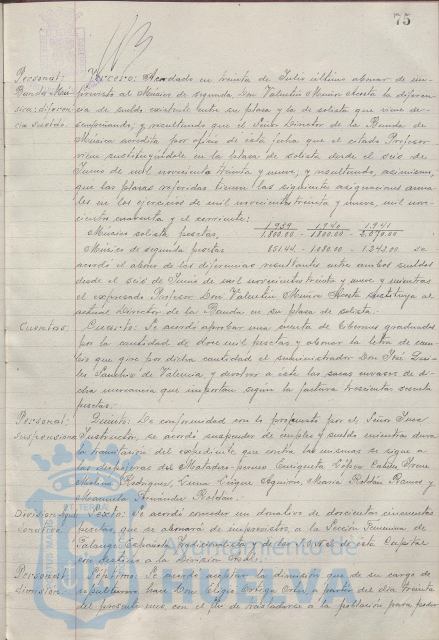 75
Personal: Tercero: Acordado en treinta de Julio último abonar de im-
Banda Mú- previsto al Músico de segunda, Don Valentín Munier Acosta la diferen-
sica: diferen- cia de sueldo existente entre su plaza y la de solista que viene de-
cia sueldo. sempeñando; y resultando que el Señor Director de la Banda de
Música acredita por oficio de esta fecha que el citado Profesor
viene sustituyéndole en la plaza de solista desde el seis de
Junio de mil novecientos treinta y nueve; y resultando, asimismo,
que las plazas referidas tienen las siguientes asignaciones anua-
les en los ejercicios de mil novecientos treinta y nueve, mil nove-
cientos cuarenta y el corriente:
1939 - 1940 - 1941
Músico solista pesetas, 1.800.00 - 1.800.00 -
Músico de segunda pesetas - 1.080.00 - 1.243.00 se
acordó el abono de las diferencias resultantes entre ambos sueldos
desde el seis de Junio de mil novecientos treinta y nueve y mientras
el expresado Profesor Don Valentín Munier Acosta sustituya al
actual Director de la Banda en su plaza de solista.
Cuentas. Cuarto: Se acordó aprobar una cuenta de
por la cantidad de doce mil pesetas y abonar la letra de cam-
bio que gire por dicha cantidad el suministrador Don José
Sancho de Valencia, y devolver a éste los sacos envases de di-
cha mercancía que importan según la factura trescientas sesenta
pesetas.
Personal: Quinto: De conformidad con lo propuesto por el Señor Juez
Suspensiones Instructor, se acordó suspender de empleo y sueldo mientras dura
la tramitación del expediente que contra las mismas se sigue a
las del Matadero Enriqueta López
Molina Rodríguez, María Roldán Ramos y
Manuela Fernández Roldán.
División Sexto: Se acordó conceder un donativo de doscientas cincuenta
pesetas, que se abonará de imprevistos, a la Sección Femenina de
Falange Española Tradicionalista y de las J.O.N.S. de esta Capital
con destino a la División Azul.
Personal: Séptimo: Se acordó aceptar la dimisión que de su cargo de
dimisión. sepulturero hace Don Eligio Ortega a partir del día treinta
del presente mes, con el fin de trasladarse a la población para poder
Ayuntamiento de
HUELVA